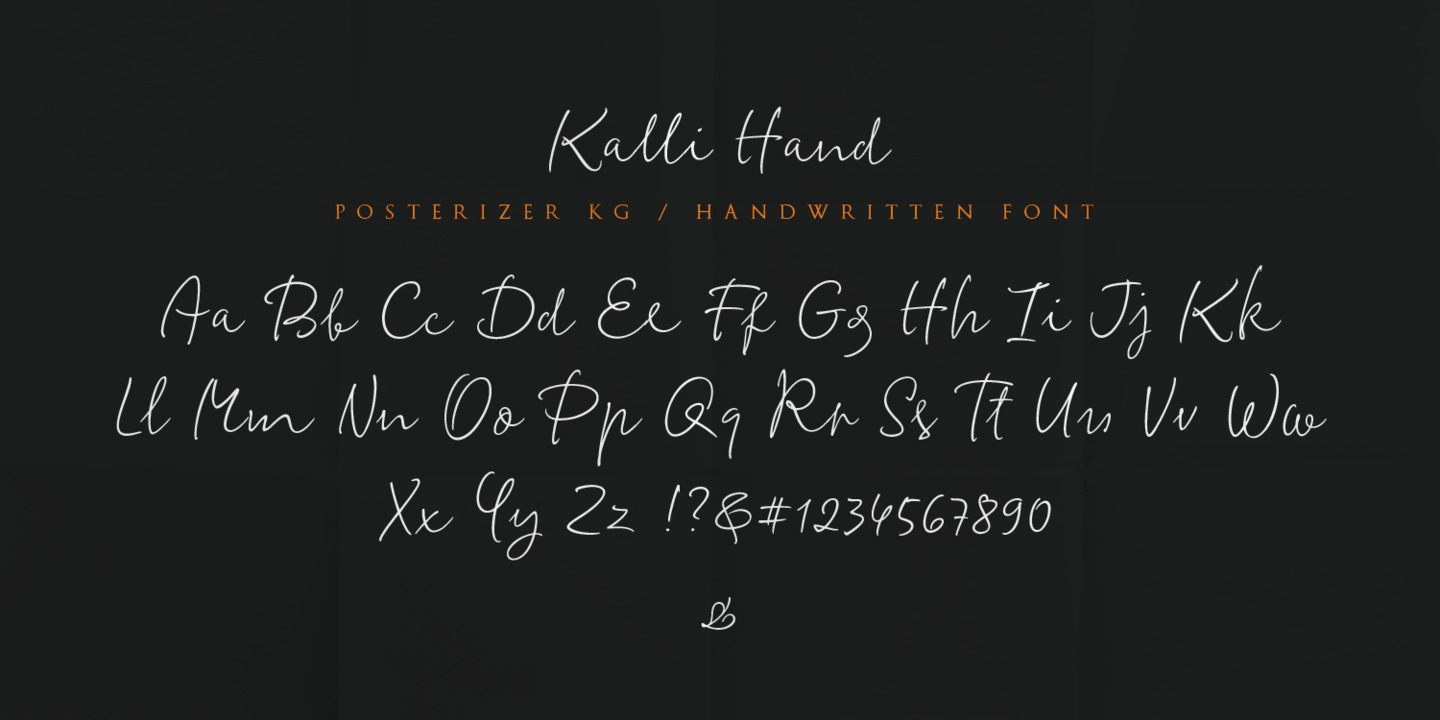 Kalli Hand
POSTERIZER KG / HANDWRITTEN FONT
Aa Bb Cc Dd Ee Ff Gg Hh Ii Jj Kk
Ll Mm Nn Oo Pp Qq Rr Ss Tt Uu Vv Ww
Xx Yy Zz !?&#1234567890